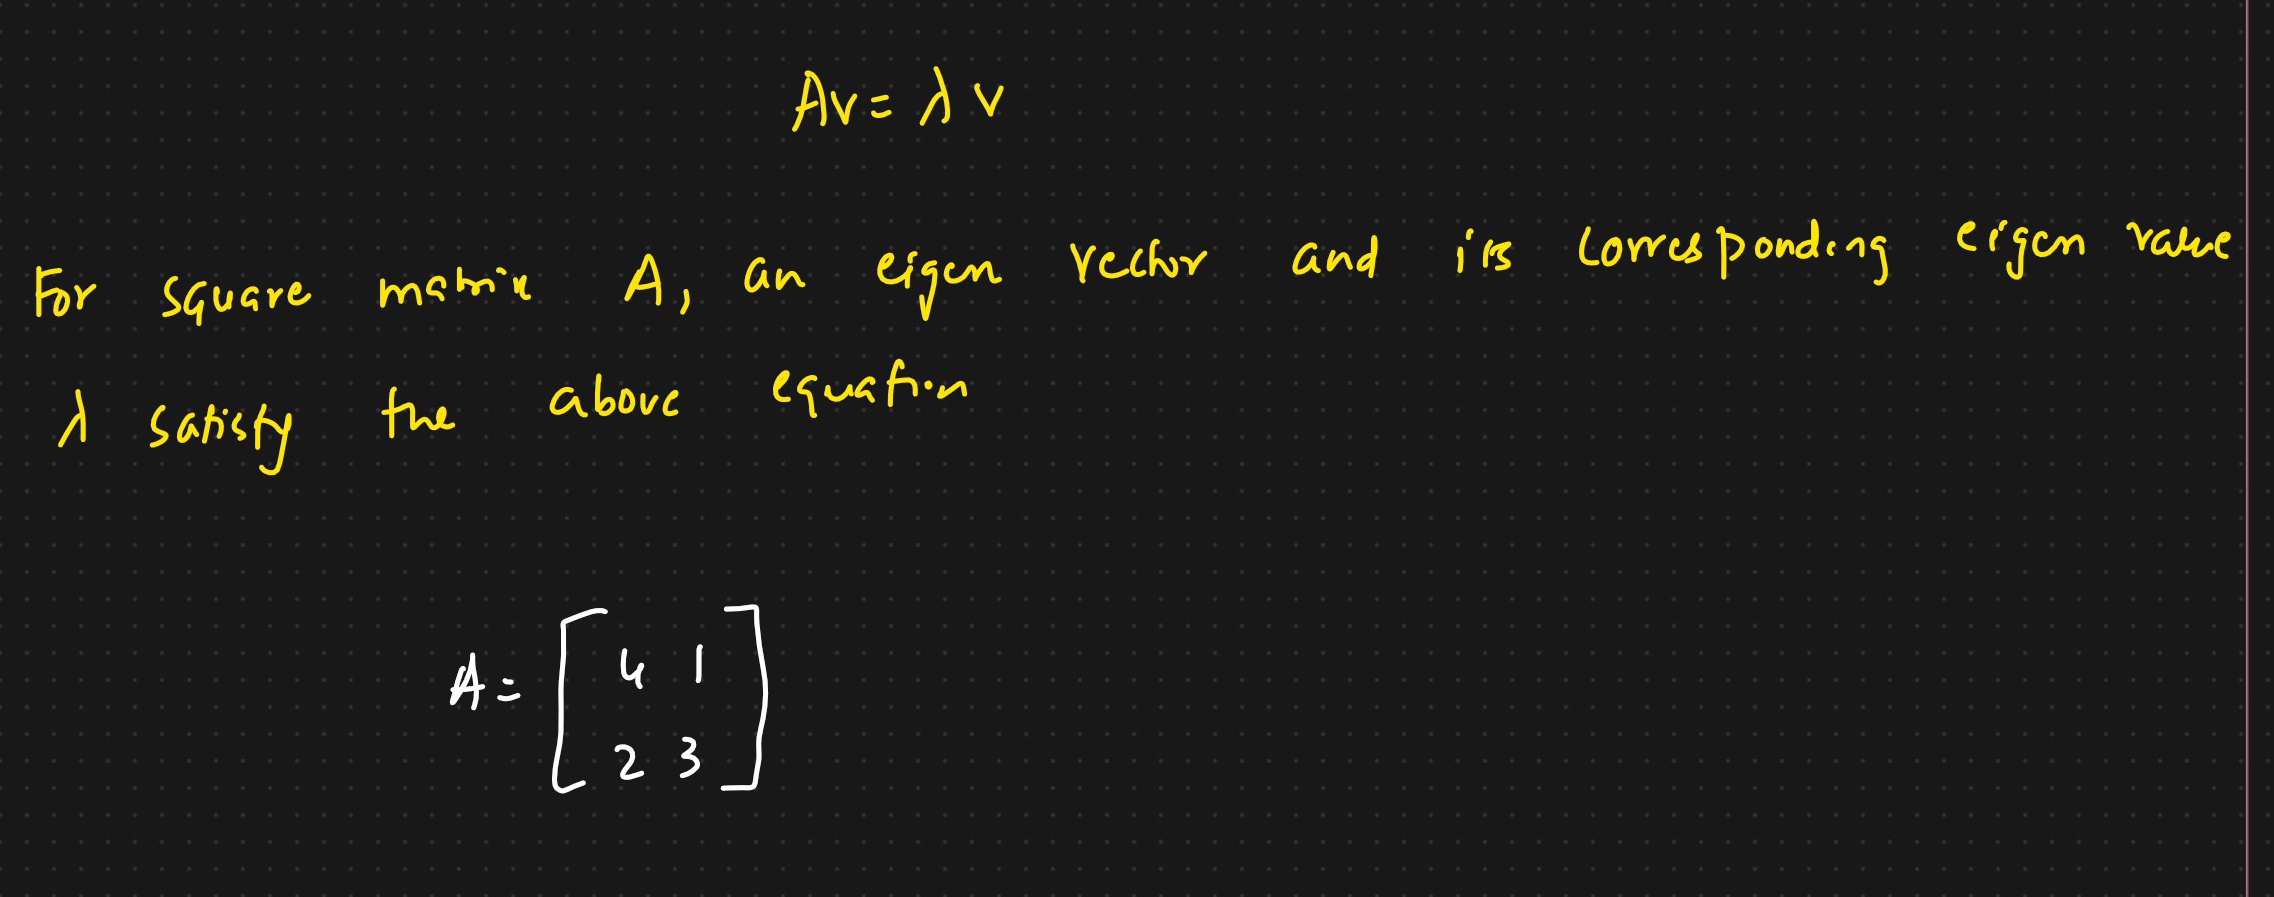 Av = λv
For square matrix A, an eigen vector and its corresponding eigen value
λ satisfy the above equation
A = [ 4 1
2 3 ]